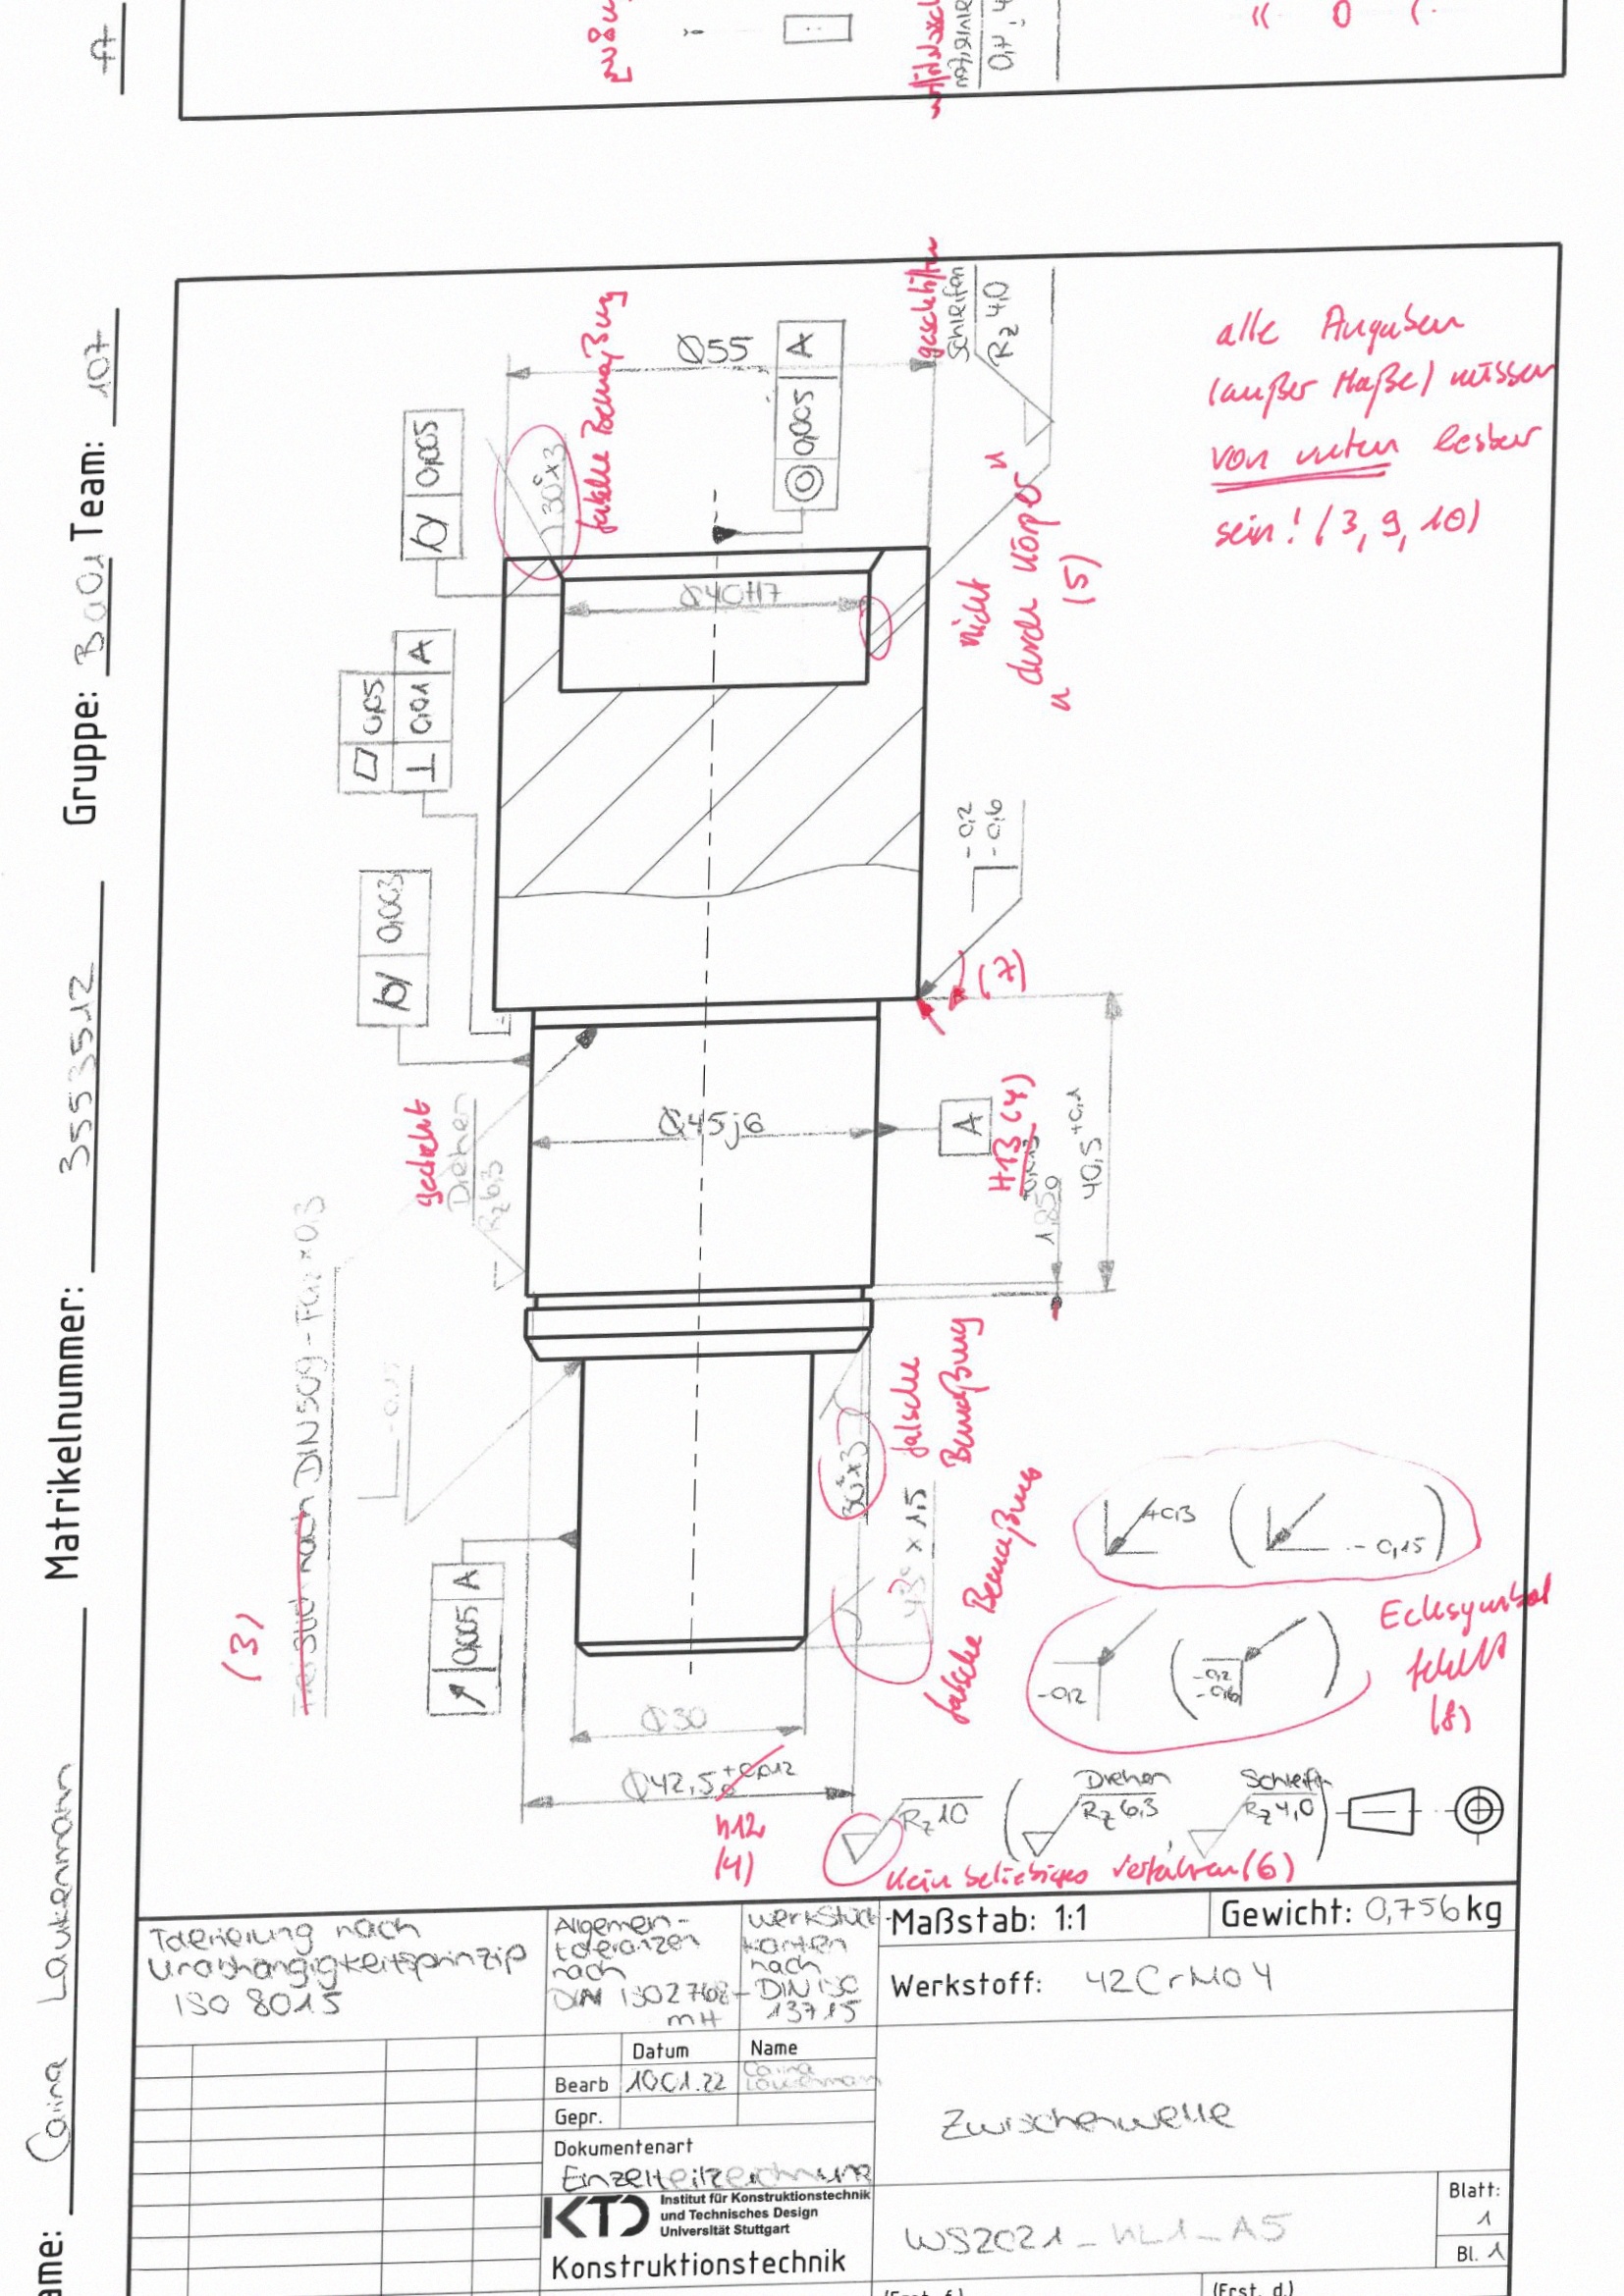 Name: Carina Laukenmann
Matrikelnummer: 3553512
Gruppe: Ba01 Team: 107
Ø55
falsche Bemaßung
30°x3
0,005
0,005 A
geschliffen
Schleifen
Rz 4,0
alle Angaben
(außer Maße) müssen
von unten lesbar
sein! (3, 9, 10)
Ø40H7
nicht
durch Körper
(5)
0,05
0,01 A
-0,2
-0,6
0,003
(7)
gedreht
Drehen
Rz 6,3
Ø45j6
A
H13 (4)
1,85
40,5 +0,1
(3)
Freistich nach DIN 509 - F0,2x0,3
30°x3
falsche
Bemaßung
45° x 1,5
falsche Bemaßung
0,005 A
Ø30
Ø42,5 +0,012
h12
(4)
+0,3 ( -0,15 )
-0,2 ( -0,2 -0,6 )
Ecksymbol
fehlt
(8)
Rz 10 ( Drehen Rz 6,3 , Schleifen Rz 4,0 )
kein beliebiges Verfahren (6)
Tolerierung nach
Unabhängigkeitsprinzip
ISO 8015
Algemein-
toleranzen
nach
DIN ISO 2768-
mH
Werkstück-
kanten
nach
DIN ISO
13715
Maßstab: 1:1
Gewicht: 0,756 kg
Werkstoff: 42CrMo4
Datum Name
Bearb 10.01.22 Carina Laukenmann
Gepr.
Dokumentenart
Einzelteilzeichnung
Zwischenwelle
KTD Institut für Konstruktionstechnik
und Technisches Design
Universität Stuttgart
Konstruktionstechnik
WS2021_KL1_A5
Blatt:
1
Bl. 1
(Erst. f.)
(Erst. d.)